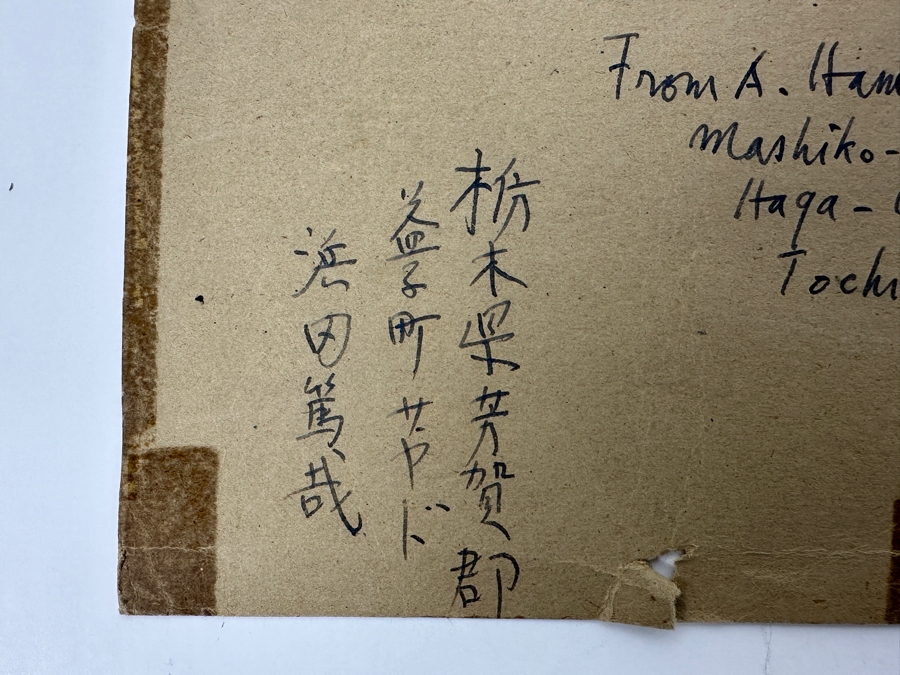 From A. Ham
Mashiko-
Haga-
Tochi
栃木県芳賀郡
益子町サヤド
浜田篤哉